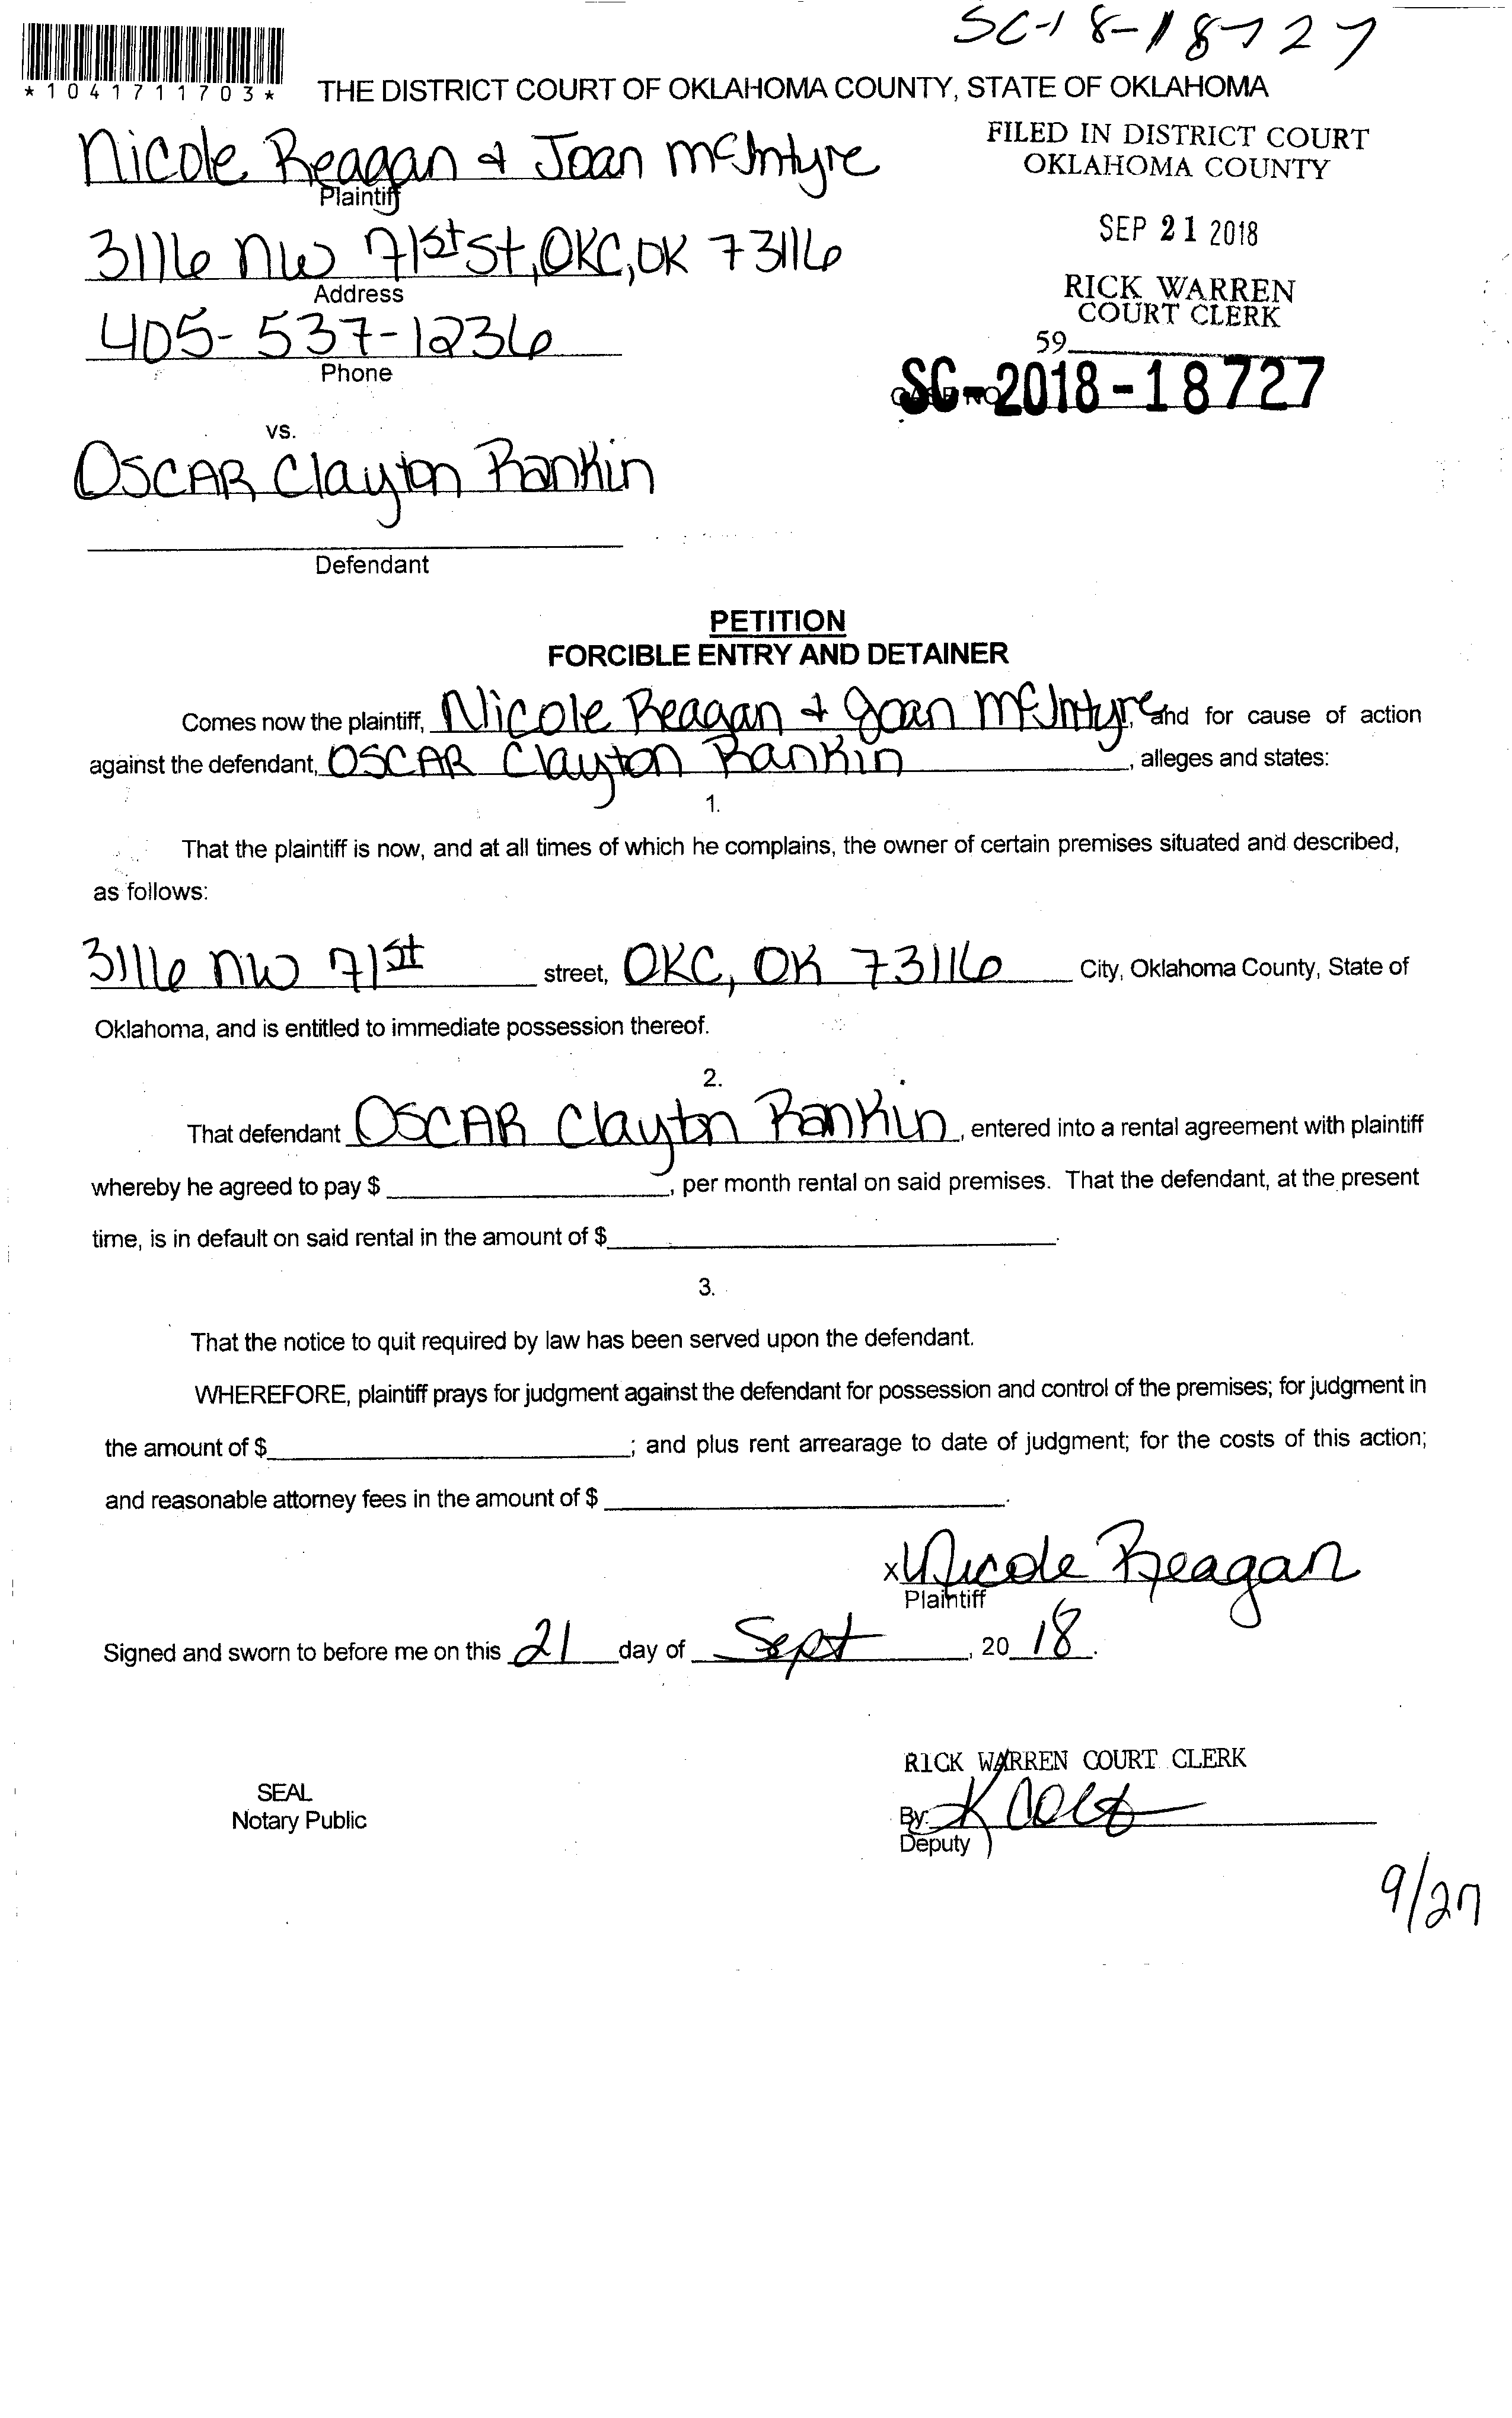 SC-18-18727
*1041711703*
THE DISTRICT COURT OF OKLAHOMA COUNTY, STATE OF OKLAHOMA
Nicole Reagan & Joan McIntyre
Plaintiff
FILED IN DISTRICT COURT
OKLAHOMA COUNTY
3116 NW 71st St, OKC, OK 73116
Address
SEP 21 2018
405-537-1236
Phone
RICK WARREN
COURT CLERK
59
SC-2018-18727
vs.
OSCAR Clayton Rankin
Defendant
PETITION
FORCIBLE ENTRY AND DETAINER
Comes now the plaintiff, Nicole Reagan & Joan McIntyre, and for cause of action
against the defendant, OSCAR Clayton Rankin, alleges and states:
1.
That the plaintiff is now, and at all times of which he complains, the owner of certain premises situated and described,
as follows:
3116 NW 71st street, OKC, OK 73116 City, Oklahoma County, State of
Oklahoma, and is entitled to immediate possession thereof.
2.
That defendant OSCAR Clayton Rankin, entered into a rental agreement with plaintiff
whereby he agreed to pay $, per month rental on said premises. That the defendant, at the present
time, is in default on said rental in the amount of $.
3.
That the notice to quit required by law has been served upon the defendant.
WHEREFORE, plaintiff prays for judgment against the defendant for possession and control of the premises; for judgment in
the amount of $; and plus rent arrearage to date of judgment; for the costs of this action;
and reasonable attorney fees in the amount of $.
x Nicole Reagan
Plaintiff
Signed and sworn to before me on this 21 day of Sept, 2018.
RICK WARREN COURT CLERK
SEAL
Notary Public
By: K
Deputy
9/27